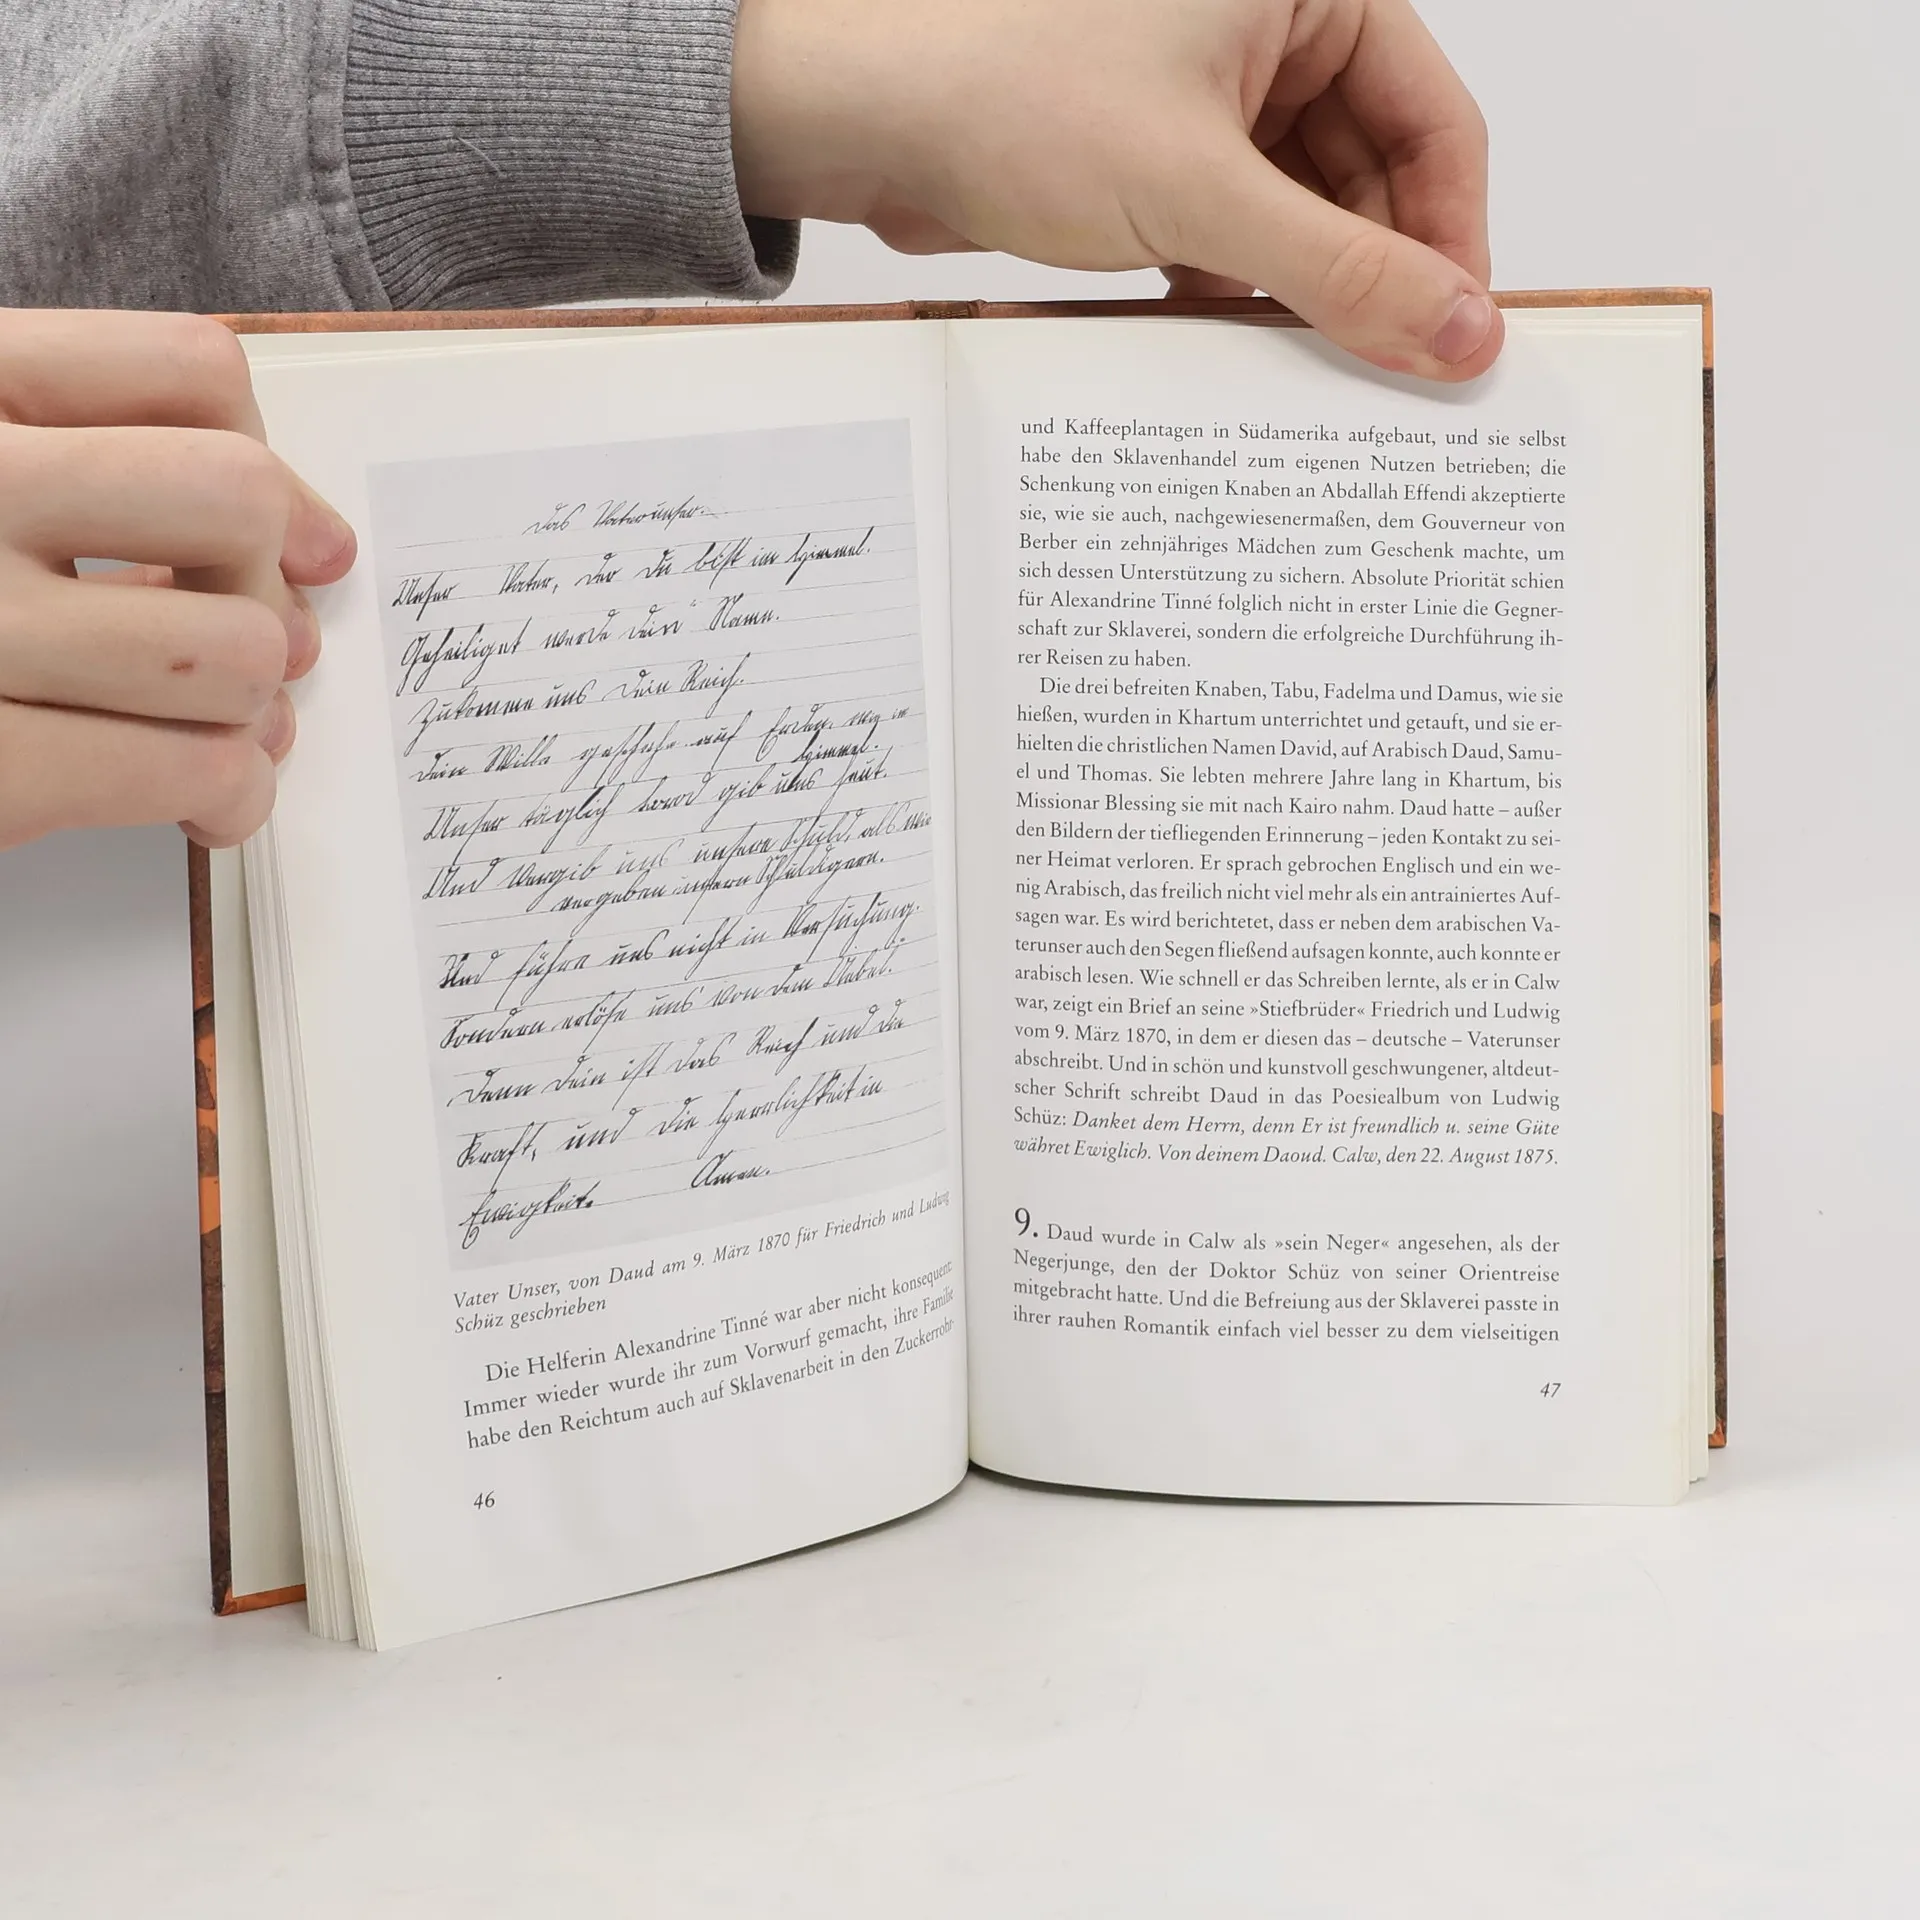 Das Vaterunser.
Unser Vater, der du bist im Himmel.
Geheiliget werde dein Name.
Zukomme uns dein Reich.
Dein Wille geschehe auf Erden, wie im
Himmel.
Unser täglich brod gib uns heut.
Und Vergib uns unsere Schuld, als wir
vergeben unsern Schuldigern.
Und führe uns nicht in Versuchung.
Sondern erlöse uns von dem Uebel.
Denn dein ist das Reich und die
Kraft, und die Herrlichkeit in
Ewigkeit. Amen.
Vater Unser, von Daud am 9. März 1870 für Friedrich und Ludwig
Schüz geschrieben
Die Helferin Alexandrine Tinné war aber nicht konsequent:
Immer wieder wurde ihr zum Vorwurf gemacht, ihre Familie
habe den Reichtum auch auf Sklavenarbeit in den Zuckerrohr-
46
und Kaffeeplantagen in Südamerika aufgebaut, und sie selbst
habe den Sklavenhandel zum eigenen Nutzen betrieben; die
Schenkung von einigen Knaben an Abdallah Effendi akzeptierte
sie, wie sie auch, nachgewiesenermaßen, dem Gouverneur von
Berber ein zehnjähriges Mädchen zum Geschenk machte, um
sich dessen Unterstützung zu sichern. Absolute Priorität schien
für Alexandrine Tinné folglich nicht in erster Linie die Gegner-
schaft zur Sklaverei, sondern die erfolgreiche Durchführung ih-
rer Reisen zu haben.
Die drei befreiten Knaben, Tabu, Fadelma und Damus, wie sie
hießen, wurden in Khartum unterrichtet und getauft, und sie er-
hielten die christlichen Namen David, auf Arabisch Daud, Samu-
el und Thomas. Sie lebten mehrere Jahre lang in Khartum, bis
Missionar Blessing sie mit nach Kairo nahm. Daud hatte – außer
den Bildern der tiefliegenden Erinnerung – jeden Kontakt zu sei-
ner Heimat verloren. Er sprach gebrochen Englisch und ein we-
nig Arabisch, das freilich nicht viel mehr als ein antrainiertes Auf-
sagen war. Es wird berichtetet, dass er neben dem arabischen Va-
terunser auch den Segen fließend aufsagen konnte, auch konnte er
arabisch lesen. Wie schnell er das Schreiben lernte, als er in Calw
war, zeigt ein Brief an seine »Stiefbrüder« Friedrich und Ludwig
vom 9. März 1870, in dem er diesen das – deutsche – Vaterunser
abschreibt. Und in schön und kunstvoll geschwungener, altdeut-
scher Schrift schreibt Daud in das Poesiealbum von Ludwig
Schüz: Danket dem Herrn, denn Er ist freundlich u. seine Güte
währet Ewiglich. Von deinem Daoud. Calw, den 22. August 1875.
9. Daud wurde in Calw als »sein Neger« angesehen, als der
Negerjunge, den der Doktor Schüz von seiner Orientreise
mitgebracht hatte. Und die Befreiung aus der Sklaverei passte in
ihrer rauhen Romantik einfach viel besser zu dem vielseitigen
47